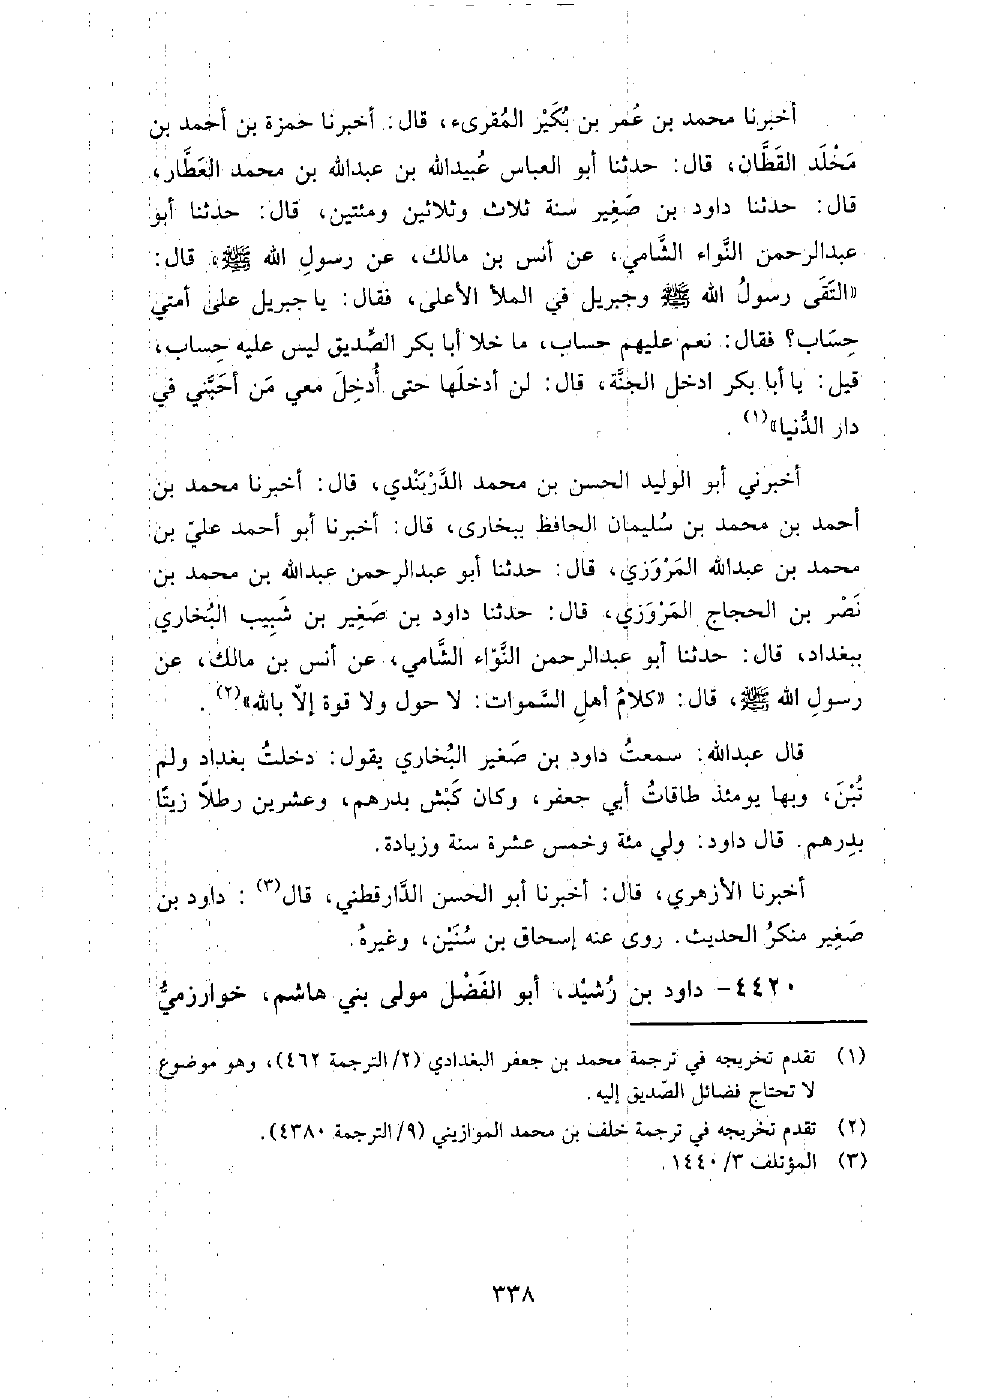 أخبرنا محمد بن عُمر بن بُكَيْر المُقرىء، قال: أخبرنا حمزة بن أحمد بن
مَخْلَد القَطَّان، قال: حدثنا أبو العباس عُبيدالله بن عبدالله بن محمد العَطَّار،
قال: حدثنا داود بن صَغِير سنة ثلاث وثلاثين ومئتين، قال: حدثنا أبو
عبدالرحمن النَّواء الشَّامي، عن أنس بن مالك، عن رسولِ الله ﷺ، قال:
«التَقَى رسولُ الله ﷺ وجبريل في الملأ الأعلى، فقال: يا جبريل على أمتي
حِسَاب؟ فقال: نعم عليهم حساب، ما خلا أبا بكر الصِّديق ليس عليه حِساب،
قيل: يا أبا بكر ادخل الجنَّة، قال: لن أدخلَها حتى أُدخِلَ معي مَن أحَبَّني في
دار الدُّنيا»(١).
أخبرني أبو الوليد الحسن بن محمد الدَّرْبَنْدي، قال: أخبرنا محمد بن
أحمد بن محمد بن سُليمان الحافظ ببخارى، قال: أخبرنا أبو أحمد عليّ بن
محمد بن عبدالله المَرْوَزي، قال: حدثنا أبو عبدالرحمن عبدالله بن محمد بن
نَصْر بن الحجاج المَرْوَزي، قال: حدثنا داود بن صَغِير بن شَبِيب البُخاري
ببغداد، قال: حدثنا أبو عبدالرحمن النَّوَّاء الشَّامي، عن أنس بن مالك، عن
رسولِ الله ﷺ، قال: «كلامُ أهلِ السَّموات: لا حول ولا قوة إلاّ بالله»(٢).
قال عبدالله: سمعتُ داود بن صَغير البُخاري يقول: دخلتُ بغداد ولم
تُبْنَ، وبها يومئذ طاقاتُ أبي جعفر، وكان كَبْش بدرهم، وعشرين رطلاً زيتًا
بدرهم. قال داود: ولي مئة وخمس عشرة سنة وزيادة.
أخبرنا الأزهري، قال: أخبرنا أبو الحسن الدَّارقطني، قال(٣): داود بن
صَغِير منكرُ الحديث. روى عنه إسحاق بن سُنَيْن، وغيرهُ.
٤٤٢٠- داود بن رُشيْد، أبو الفَضْل مولى بني هاشم، خوارزميُّ
(١) تقدم تخريجه في ترجمة محمد بن جعفر البغدادي (٢/ الترجمة ٤٦٢)، وهو موضوع
لا تحتاج فضائل الصّديق إليه.
(٢) تقدم تخريجه في ترجمة خلف بن محمد الموازيني (٩/ الترجمة ٤٣٨٠).
(٣) المؤتلف ٣/ ١٤٤٠.
٣٣٨